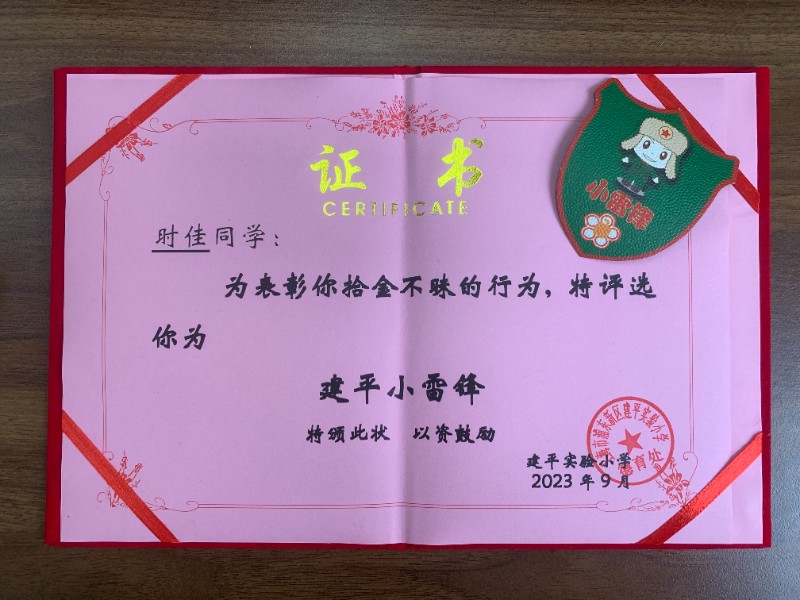 证 书
CERTIFICATE
小雷锋
时佳同学：
为表彰你拾金不昧的行为，特评选
你为
建平小雷锋
特颁此状 以资鼓励
建平实验小学
2023 年 9 月
市浦东新区建平实验小学
德育处